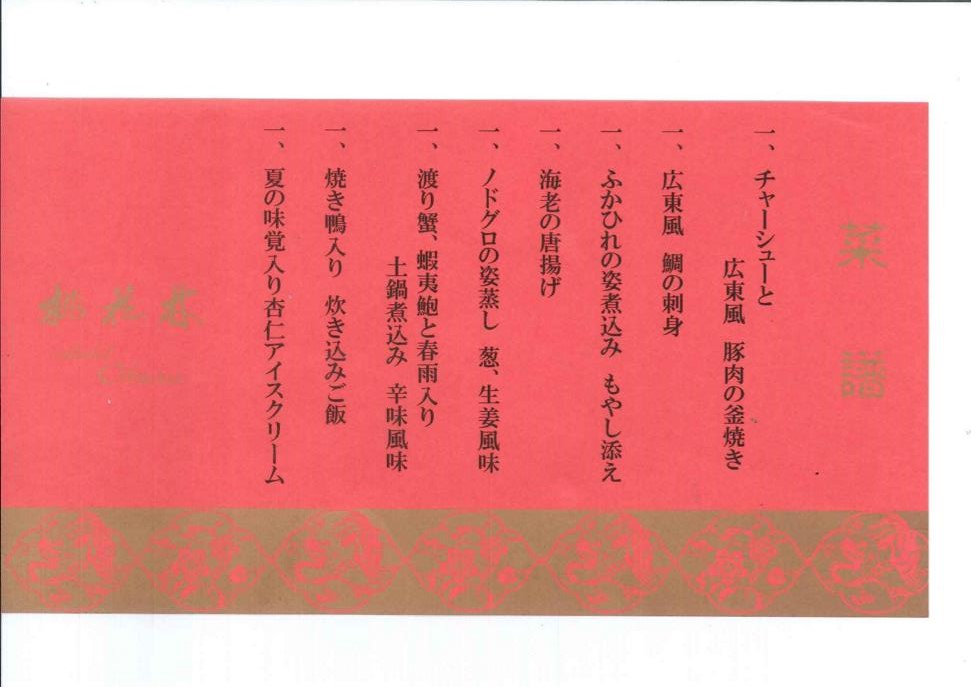 菜譜
一、チャーシューと
広東風 豚肉の釜焼き
一、広東風 鯛の刺身
一、ふかひれの姿煮込み もやし添え
一、海老の唐揚げ
一、ノドグロの姿蒸し 葱、生姜風味
一、渡り蟹、蝦夷鮑と春雨入り
土鍋煮込み 辛味風味
一、焼き鴨入り 炊き込みご飯
一、夏の味覚入り杏仁アイスクリーム
桃花林